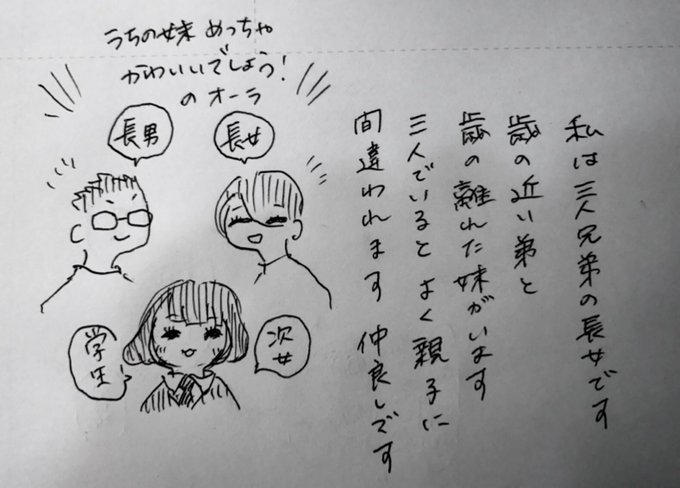 うちの妹 めっちゃ
かわいいでしょう！
のオーラ
長男
長女
次女
学生
私は三人兄弟の長女です
歳の近い弟と
歳の離れた妹がいます
三人でいると よく親子に
間違われます 仲良しです